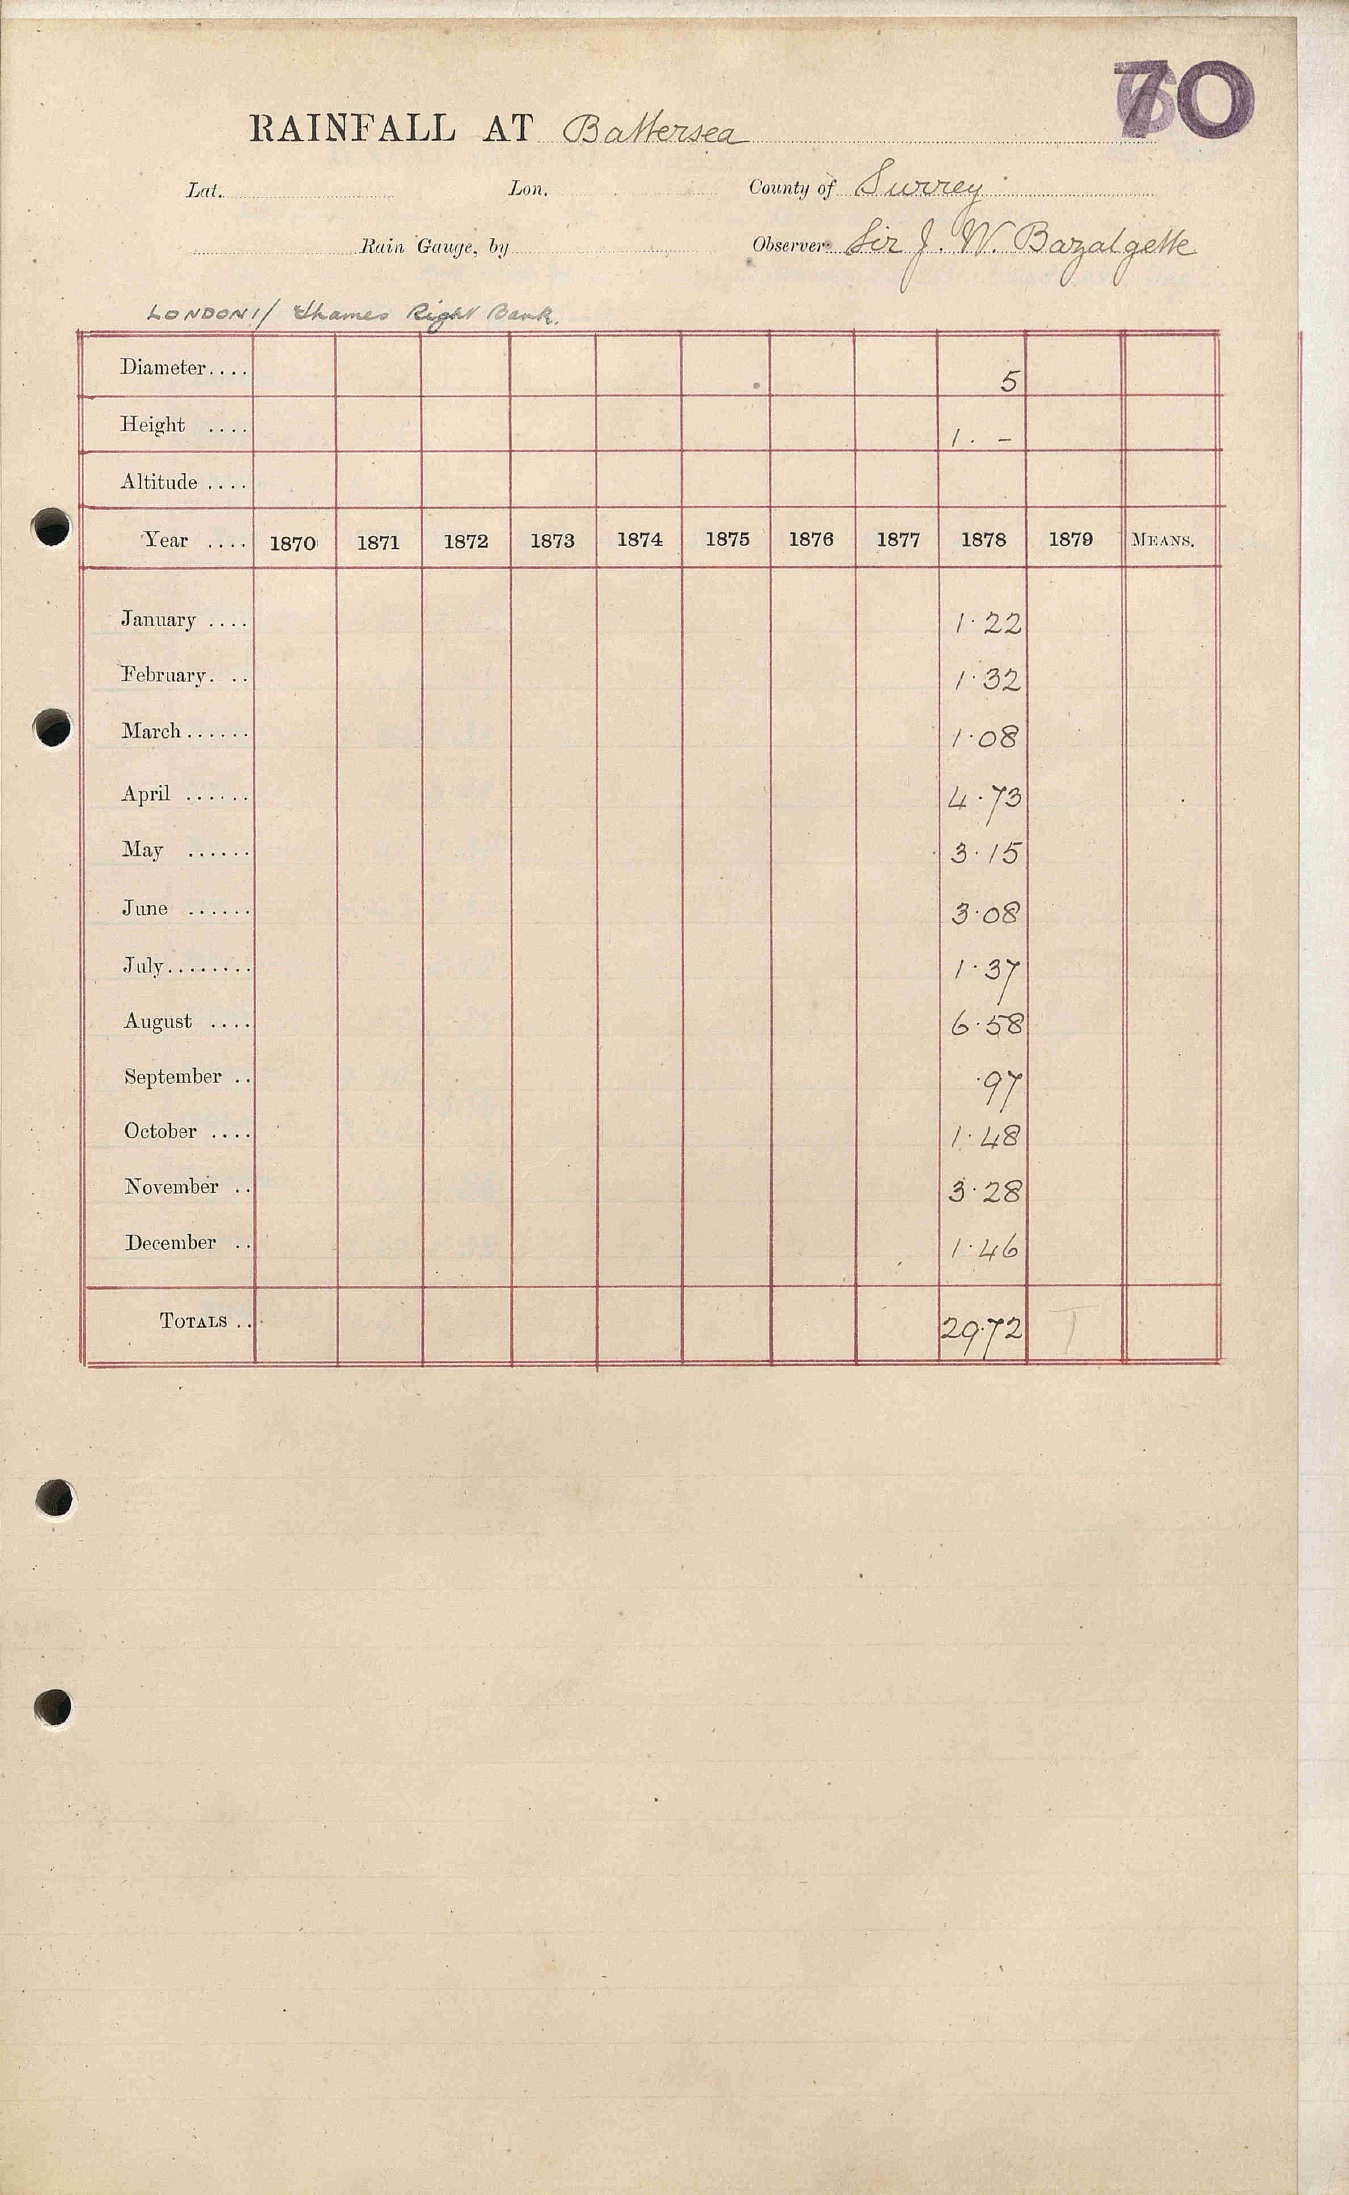 70
RAINFALL AT Battersea
Lat. Lon. County of Surrey
Rain Gauge, by Observer Sir J. W. Bazalgette
LONDON 1/ Thames Right Bank.
Diameter.... 5
Height .... 1. -
Altitude ....
Year .... 1870 1871 1872 1873 1874 1875 1876 1877 1878 1879 MEANS.
January .... 1.22
February. .. 1.32
March ...... 1.08
April ...... 4.73
May ...... 3.15
June ...... 3.08
July........ 1.37
August .... 6.58
September .. .97
October .... 1.48
November .. 3.28
December .. 1.46
TOTALS .. 29.72 T